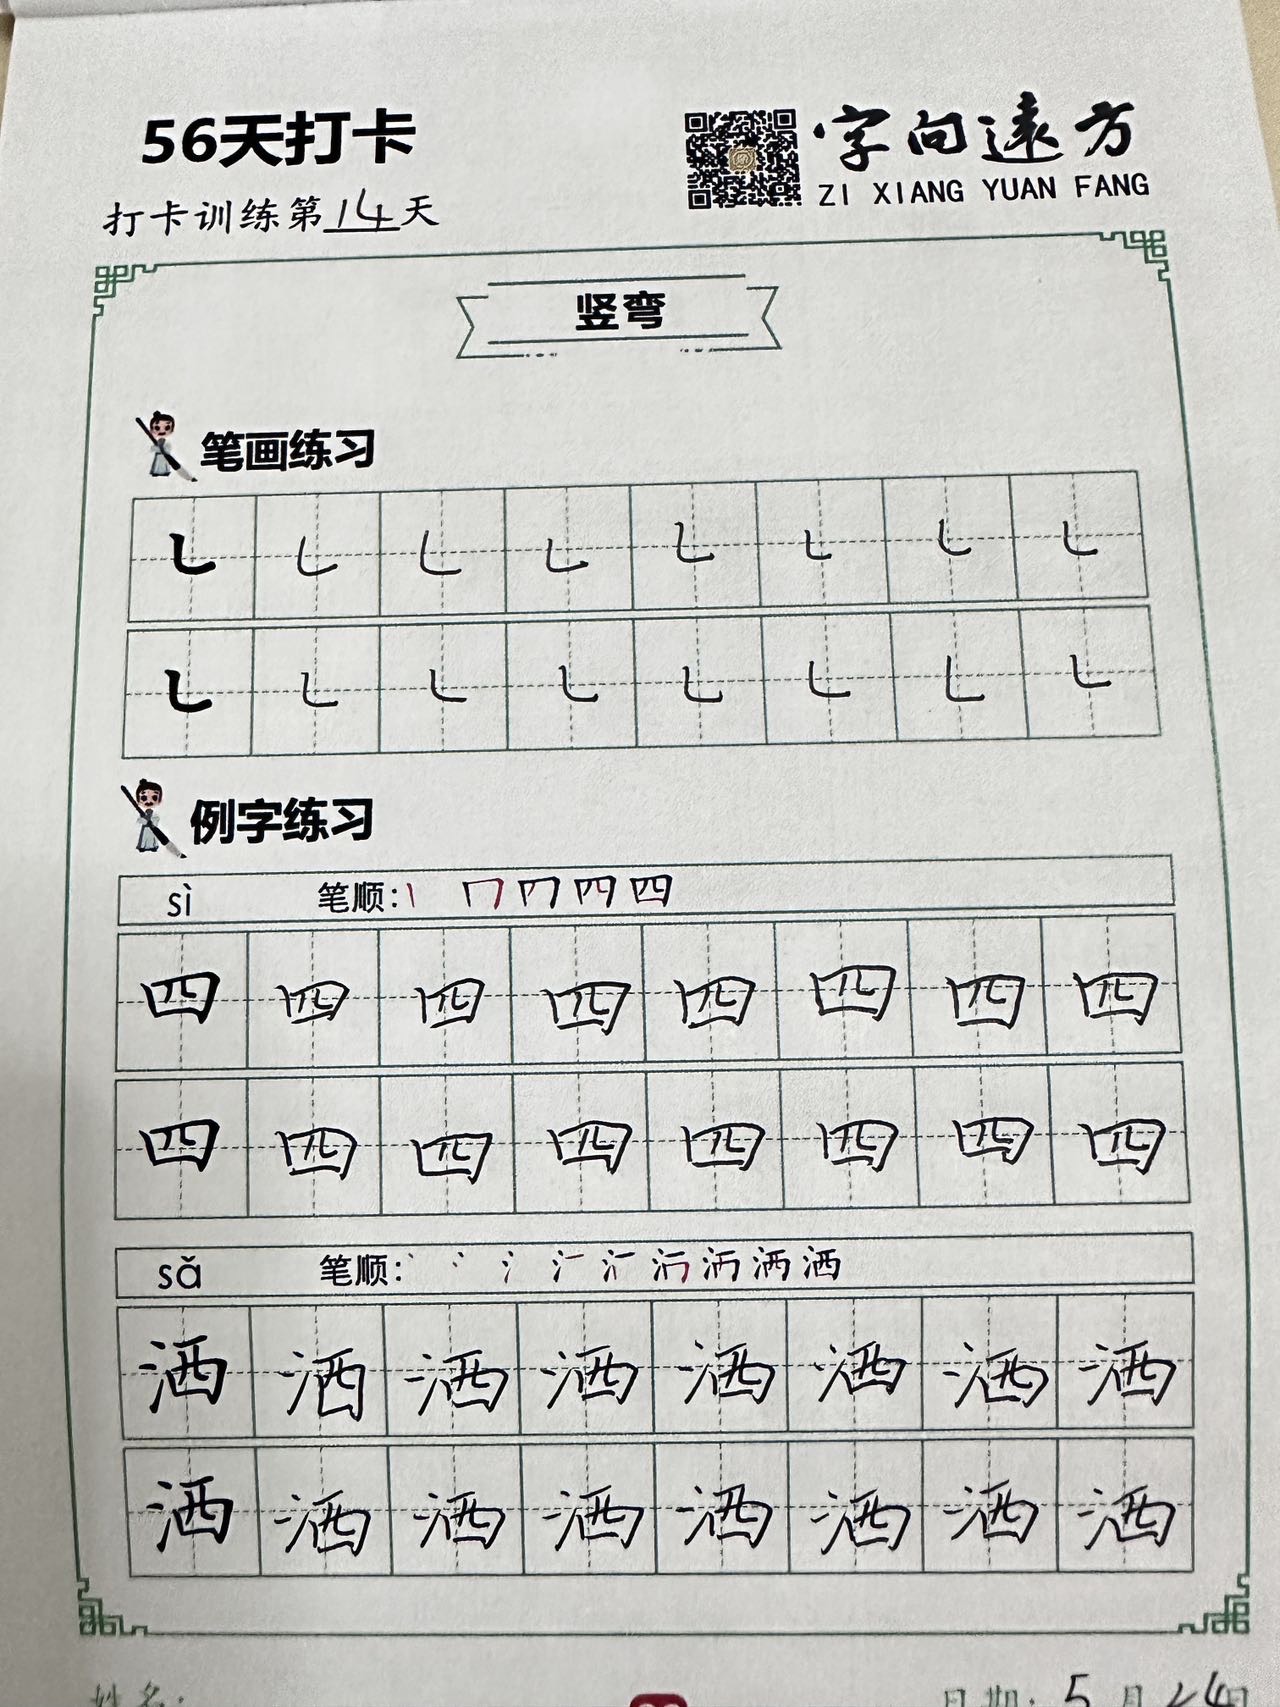 56天打卡
字向遠方
ZI XIANG YUAN FANG
打卡训练第14天
竖弯
笔画练习
㇄ ㇄ ㇄ ㇄ ㇄ ㇄ ㇄ ㇄
㇄ ㇄ ㇄ ㇄ ㇄ ㇄ ㇄ ㇄
例字练习
sì 笔顺: 四
四 四 四 四 四 四 四 四
四 四 四 四 四 四 四 四
sǎ 笔顺: 洒
洒 洒 洒 洒 洒 洒 洒 洒
洒 洒 洒 洒 洒 洒 洒 洒
姓名: 日期: 5月